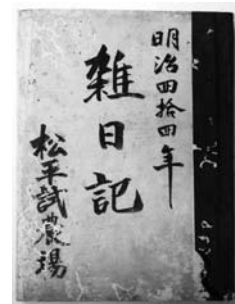 明治四拾四年
雑日記
松平試農場